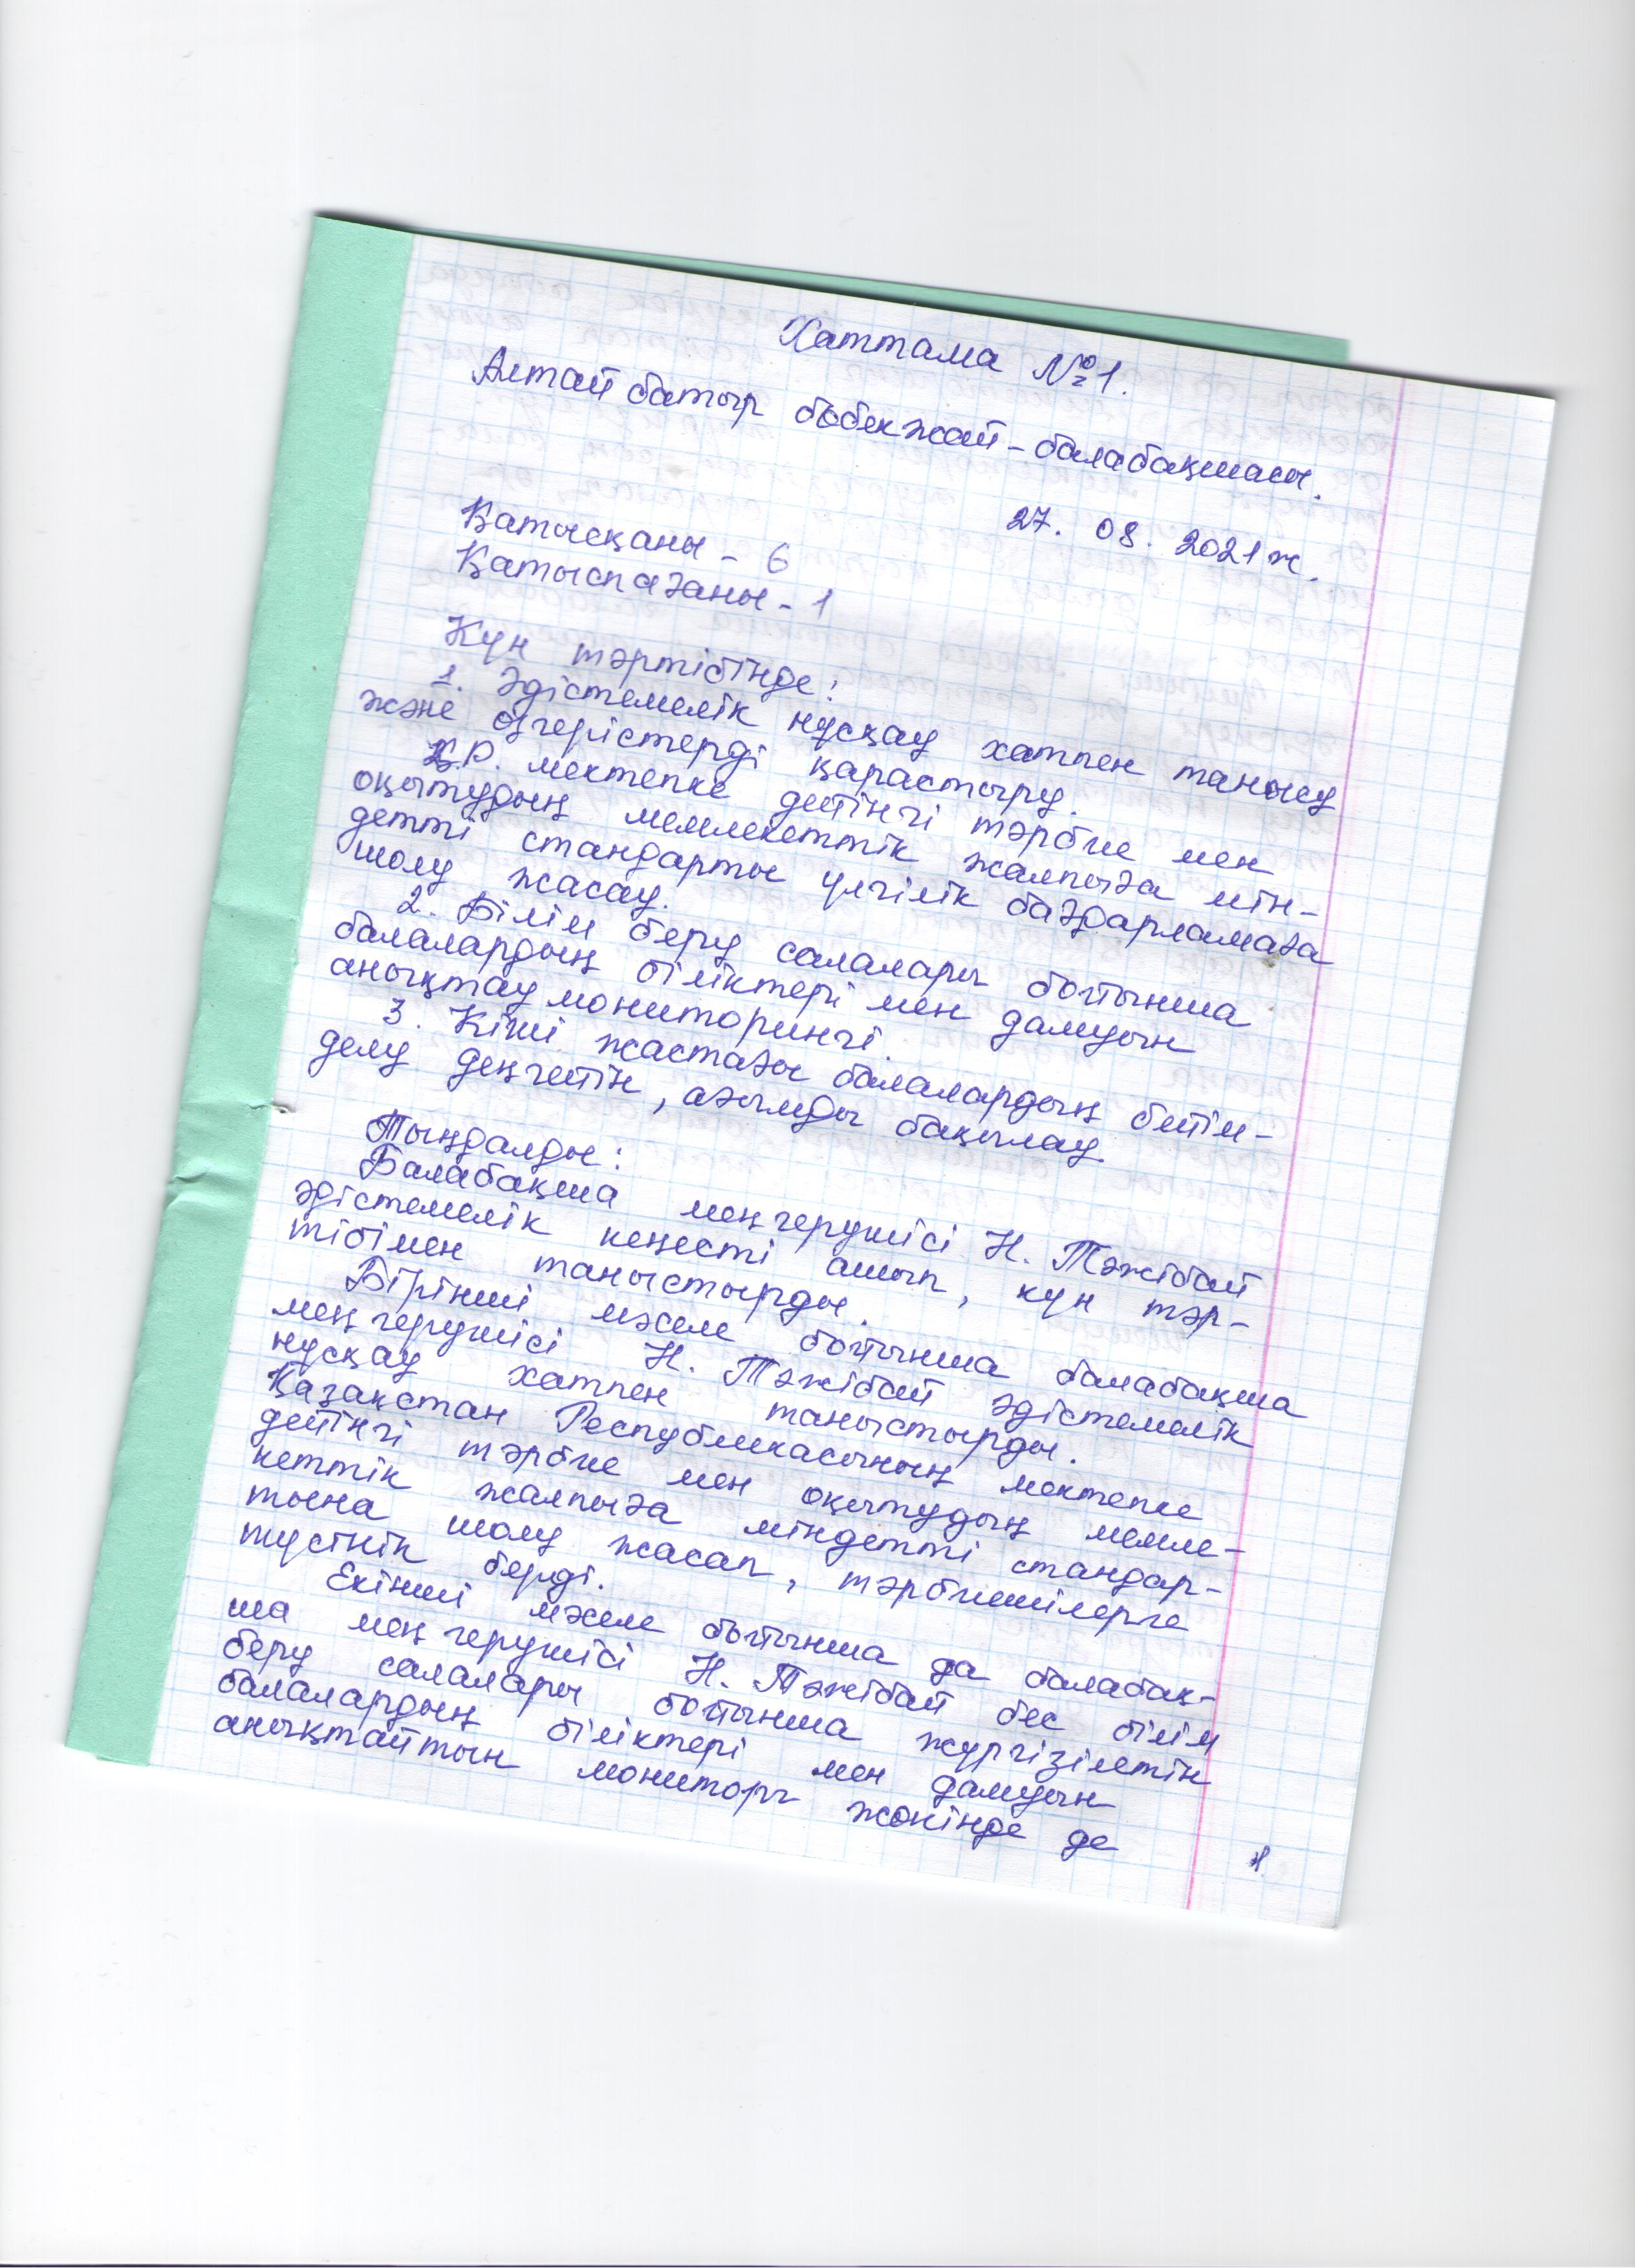 Хаттама №1.
Алтай батыр бөбекжай-балабақшасы.
27. 08. 2021 ж.
Қатысқаны - 6
Қатыспағаны - 1
Күн тәртібінде:
1. Әдістемелік нұсқау хатпен танысу
және өзгерістерді қарастыру.
Қ.Р. мектепке дейінгі тәрбие мен
оқытудың мемлекеттік жалпыға мін-
детті стандарты үлгілік бағдарламаға
шолу жасау.
2. Білім беру салалары бойынша
балалардың біліктері мен дамуын
анықтау мониторингі.
3. Кіші жастағы балалардың бейім-
делу деңгейін, ағымды бақылау.
Тыңдалды:
Балабақша меңгерушісі Н. Тәжібай
әдістемелік кеңесті ашып, күн тәр-
тібімен таныстырды.
Бірінші мәселе бойынша балабақша
меңгерушісі Н. Тәжібай әдістемелік
нұсқау хатпен таныстырды.
Қазақстан Республикасының мектепке
дейінгі тәрбие мен оқытудың мемле-
кеттік жалпыға міндетті стандар-
тына шолу жасап, тәрбиешілерге
түсінік берді.
Екінші мәселе бойынша да балабақ-
ша меңгерушісі Н. Тәжібай бес білім
беру салалары бойынша жүргізілетін
балалардың біліктері мен дамуын
анықтайтын монитор жөнінде де